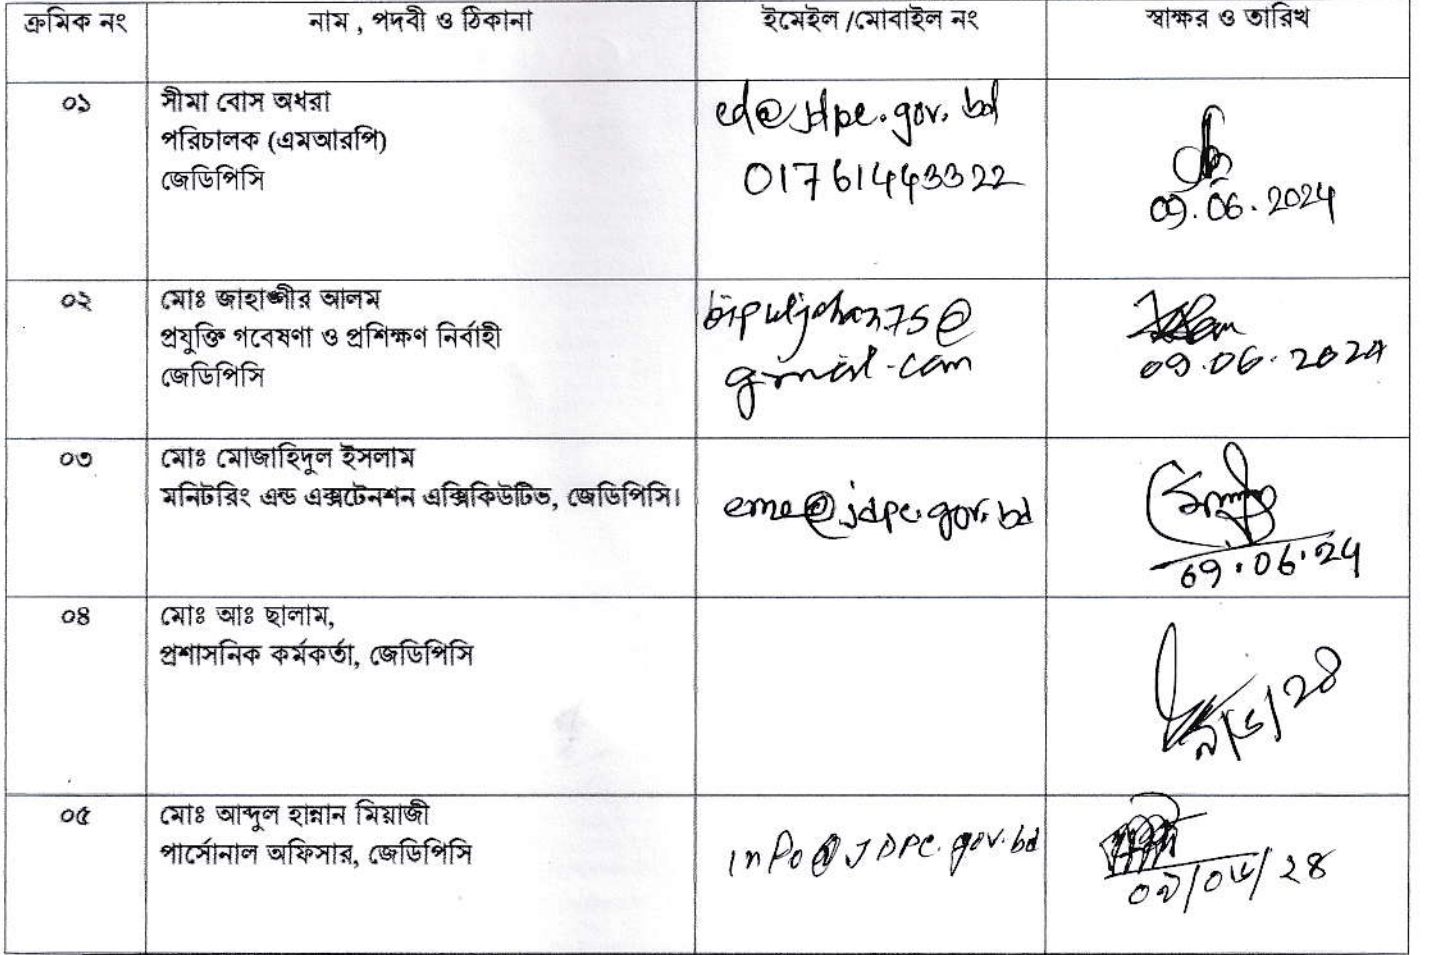 ক্রমিক নং
নাম , পদবী ও ঠিকানা
ইমেইল /মোবাইল নং
স্বাক্ষর ও তারিখ
০১
সীমা বোস অধরা
পরিচালক (এমআরপি)
জেডিপিসি
ed@jdpc.gov.bd
01761443322
09.06.2024
০২
মোঃ জাহাঙ্গীর আলম
প্রযুক্তি গবেষণা ও প্রশিক্ষণ নির্বাহী
জেডিপিসি
bipuljahan75@
gmail.com
09.06.2024
০৩
মোঃ মোজাহিদুল ইসলাম
মনিটরিং এন্ড এক্সটেনশন এক্সিকিউটিভ, জেডিপিসি।
eme@jdpc.gov.bd
09.06.24
০৪
মোঃ আঃ ছালাম,
প্রশাসনিক কর্মকর্তা, জেডিপিসি
৯/৬/২৪
০৫
মোঃ আব্দুল হান্নান মিয়াজী
পার্সোনাল অফিসার, জেডিপিসি
info@JDPC.gov.bd
০৯/০৬/২৪